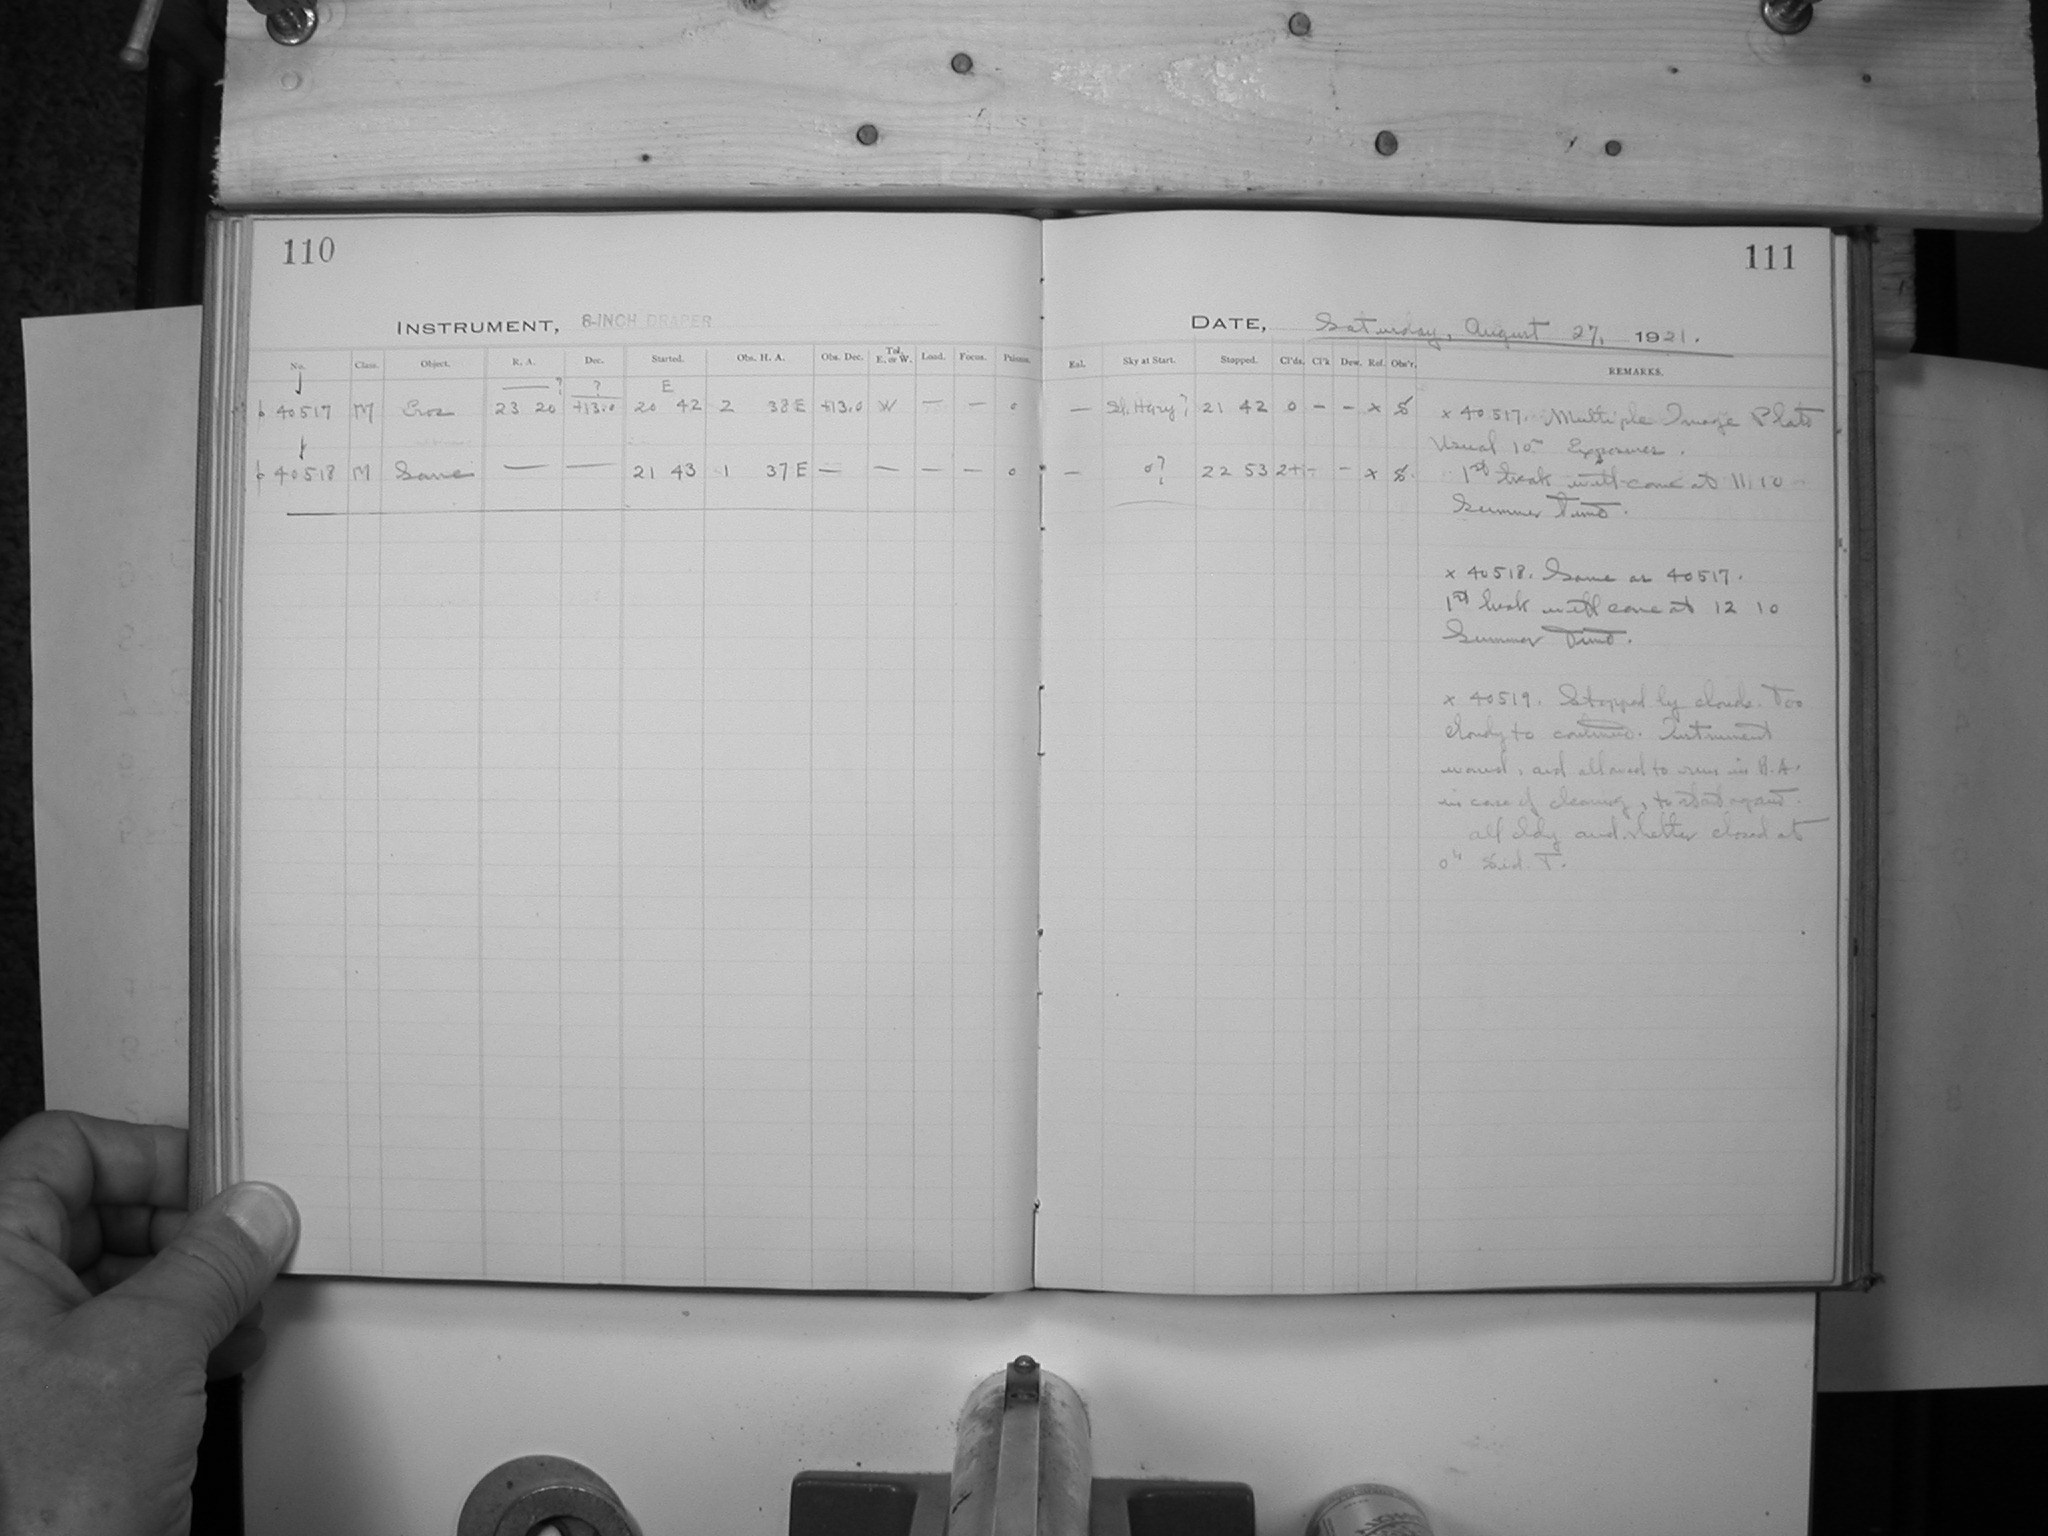 110
111
INSTRUMENT, 8-INCH DRAPER
DATE, Saturday, August 27, 1921.
No. Class. Object. R. A. Dec. Started. Obs. H. A. Obs. Dec. Tel. E. or W. Load. Focus. Prisms. Eol. Sky at Start. Stopped. Cl'ds. Cl'k Dew. Ref. Obs'r. REMARKS.
— ? ? E
40517 M Eros 23 20 +13.0 20 42 2 38 E +13.0 W — — 0 — Sl. Hazy? 21 42 0 — — x
40518 M Same — — 21 43 1 37 E — — — — 0 — 0? 22 53 2+ — — x
x 40517. Multiple Image Plate
Usual 10m Exposures.
1st break will come at 11 10
Summer Time.
x 40518. Same as 40517.
1st break will come at 12 10
Summer Time.
x 40519. Stopped by clouds. Too
cloudy to continue. Instrument
wound, and allowed to run in R.A.
in case of clearing, to start again.
all cldy and shutter closed at
0h Sid. T.